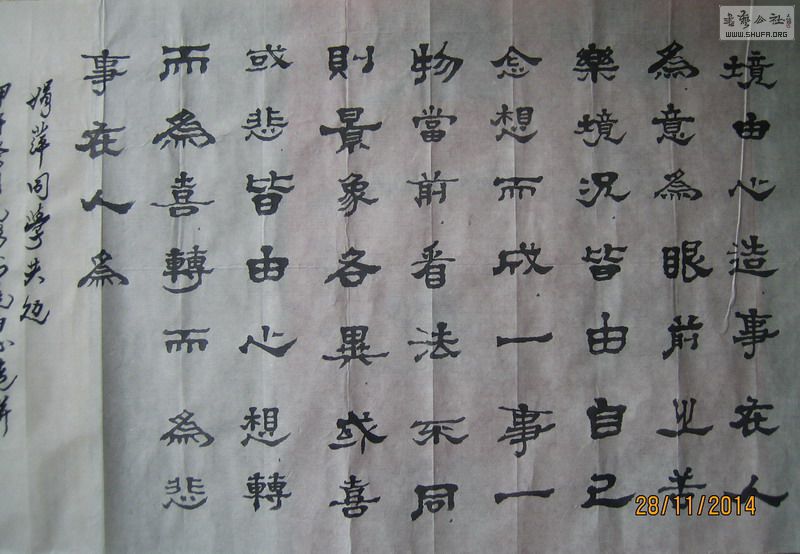 書藝公社
WWW.SHUFA.ORG
境由心造事在人
為意為眼前之
樂境況皆由自己
念想而成一事一
物當前看法不同
則景象各異或喜
或悲皆由心想轉
而為喜轉而為悲
事在人為
娟萍同學共勉
甲午冬月
28/11/2014